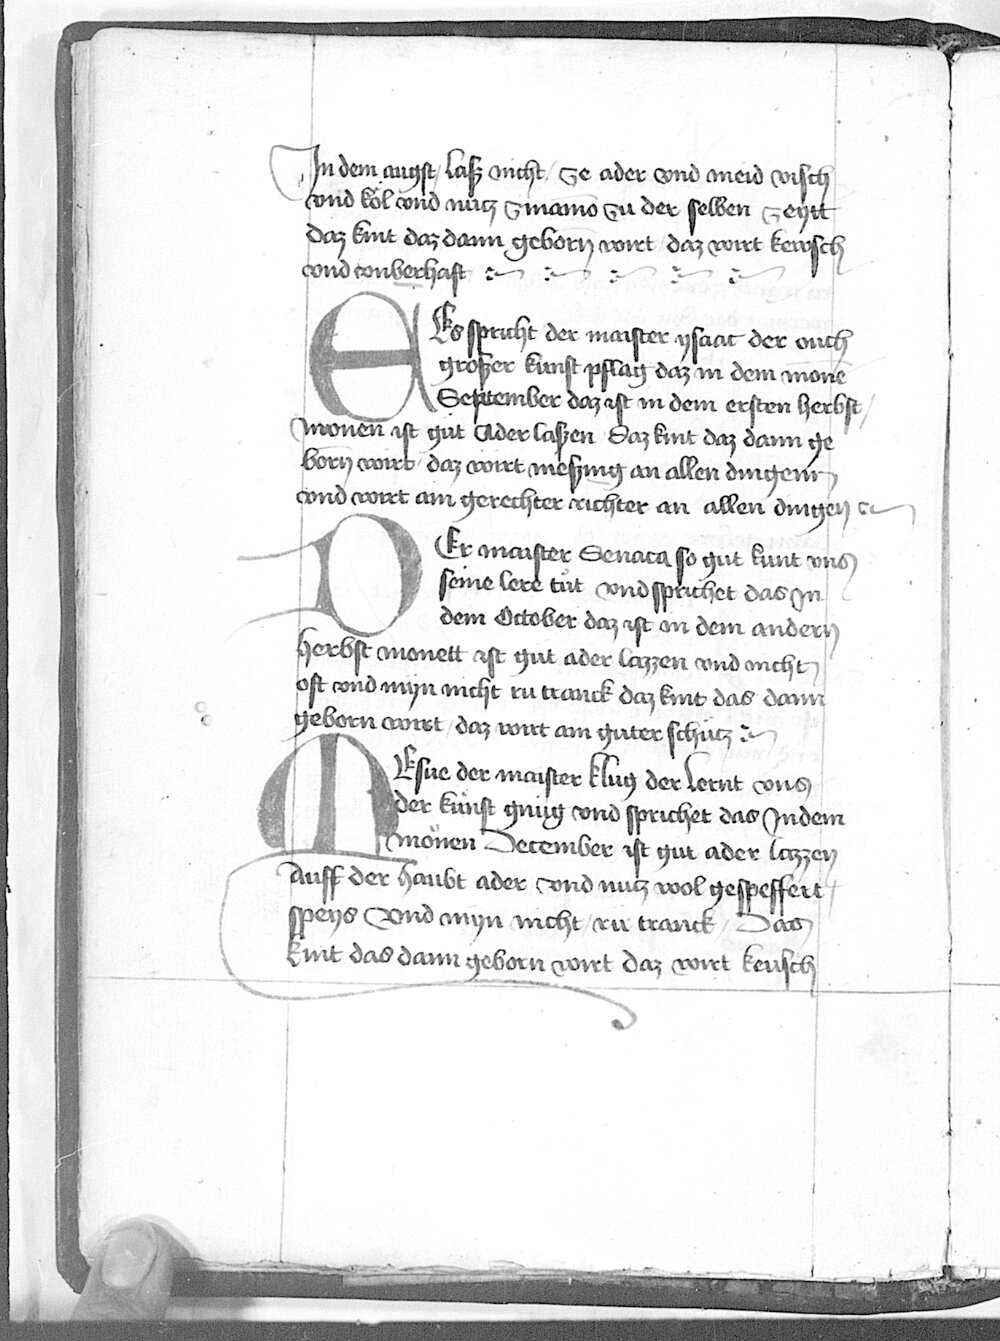 In dem augst laß nicht ze ader vnd meid visch
vnd köl vnd nutz zinamō zu der selben zeytt
daz kint daz dann geborn wirt daz wirt kewsch
vnd vnberhaft
Es spricht der maister ysaac der ouch
großer kunst pflag daz in dem mone
September daz ist in dem ersten herbst
monen ist gut Ader laßen Daz kint daz dann ge
born wirt daz wirt meßing an allen dingenn
vnd wirt ain gerechter richter an allen dingen
Er maister Senaca so gut kunt vns
seine lere tůt vnd sprichet das In
dem October daz ist in dem andern
herbst monett ist gut ader lazzen vnd nicht
oft vnd myn nicht zu tranck daz kint das dann
geborn wirt daz wirt ain guter schütz
Esue der maister klug der lernt vns
der kunst gnug vnd sprichet das In dem
mönen December ist gut ader lazzen
Auff der haubt ader vnd nutz wol gespeffert
speys Vnd myn nicht zu tranck Das
kint das dann geborn wirt daz wirt keusch